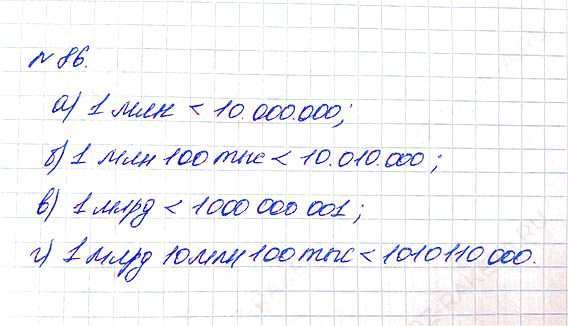 № 86.
а) 1 млн < 10.000.000;
б) 1 млн 100 тыс < 10.010.000;
в) 1 млрд < 1000 000 001;
г) 1 млрд 10 млн 100 тыс < 1010110 000.